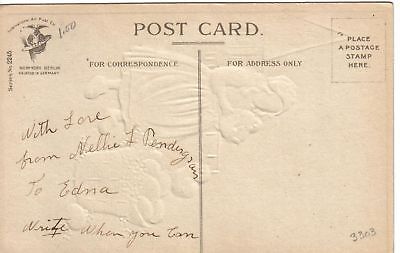 International Art Publ. Co.
1.00
NEW-YORK BERLIN
PRINTED IN GERMANY
Series No. 2245
POST CARD.
PLACE
A POSTAGE
STAMP
HERE.
FOR CORRESPONDENCE
FOR ADDRESS ONLY
With Love
from Nellie F Pendergras
To Edna
Write When you Can
3303